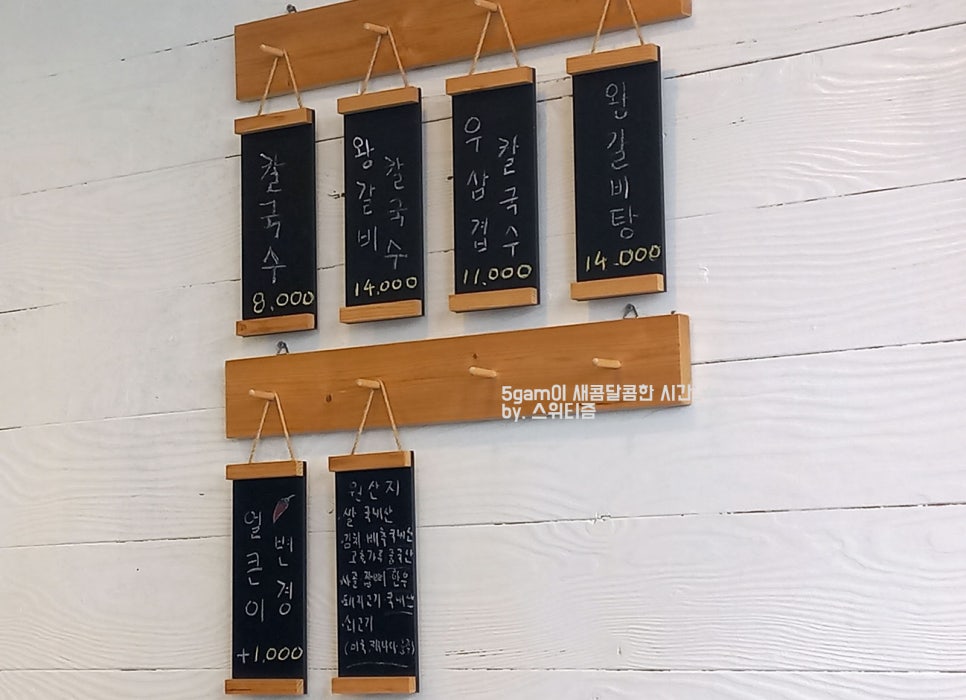 칼국수
8,000
왕갈비
칼국수
14,000
우삼겹
칼국수
11,000
왕갈비탕
14,000
5gam이 새콤달콤한 시간
by. 스위티즘
얼큰이
변경
+1,000
원산지
쌀 국내산
김치 배추 국내산
고춧가루 중국산
사골 잡뼈 한우
돼지고기 국내산
쇠고기